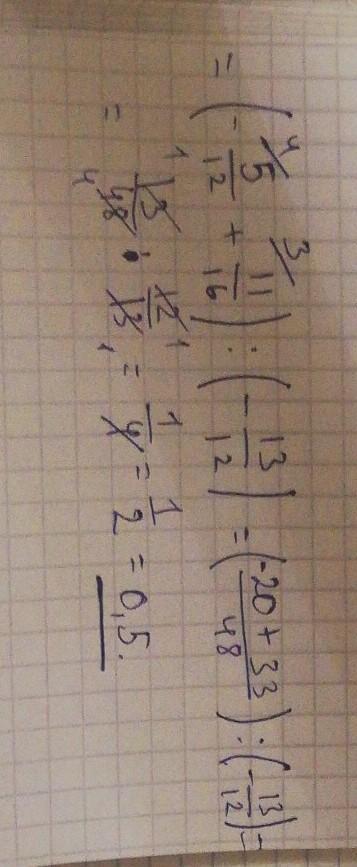 = (-5/12 + 11/16) : (-13/12) = (-20 + 33/48) : (-13/12) =
= 13/48 · 12/13 = 1/4 = 1/2 = 0,5.